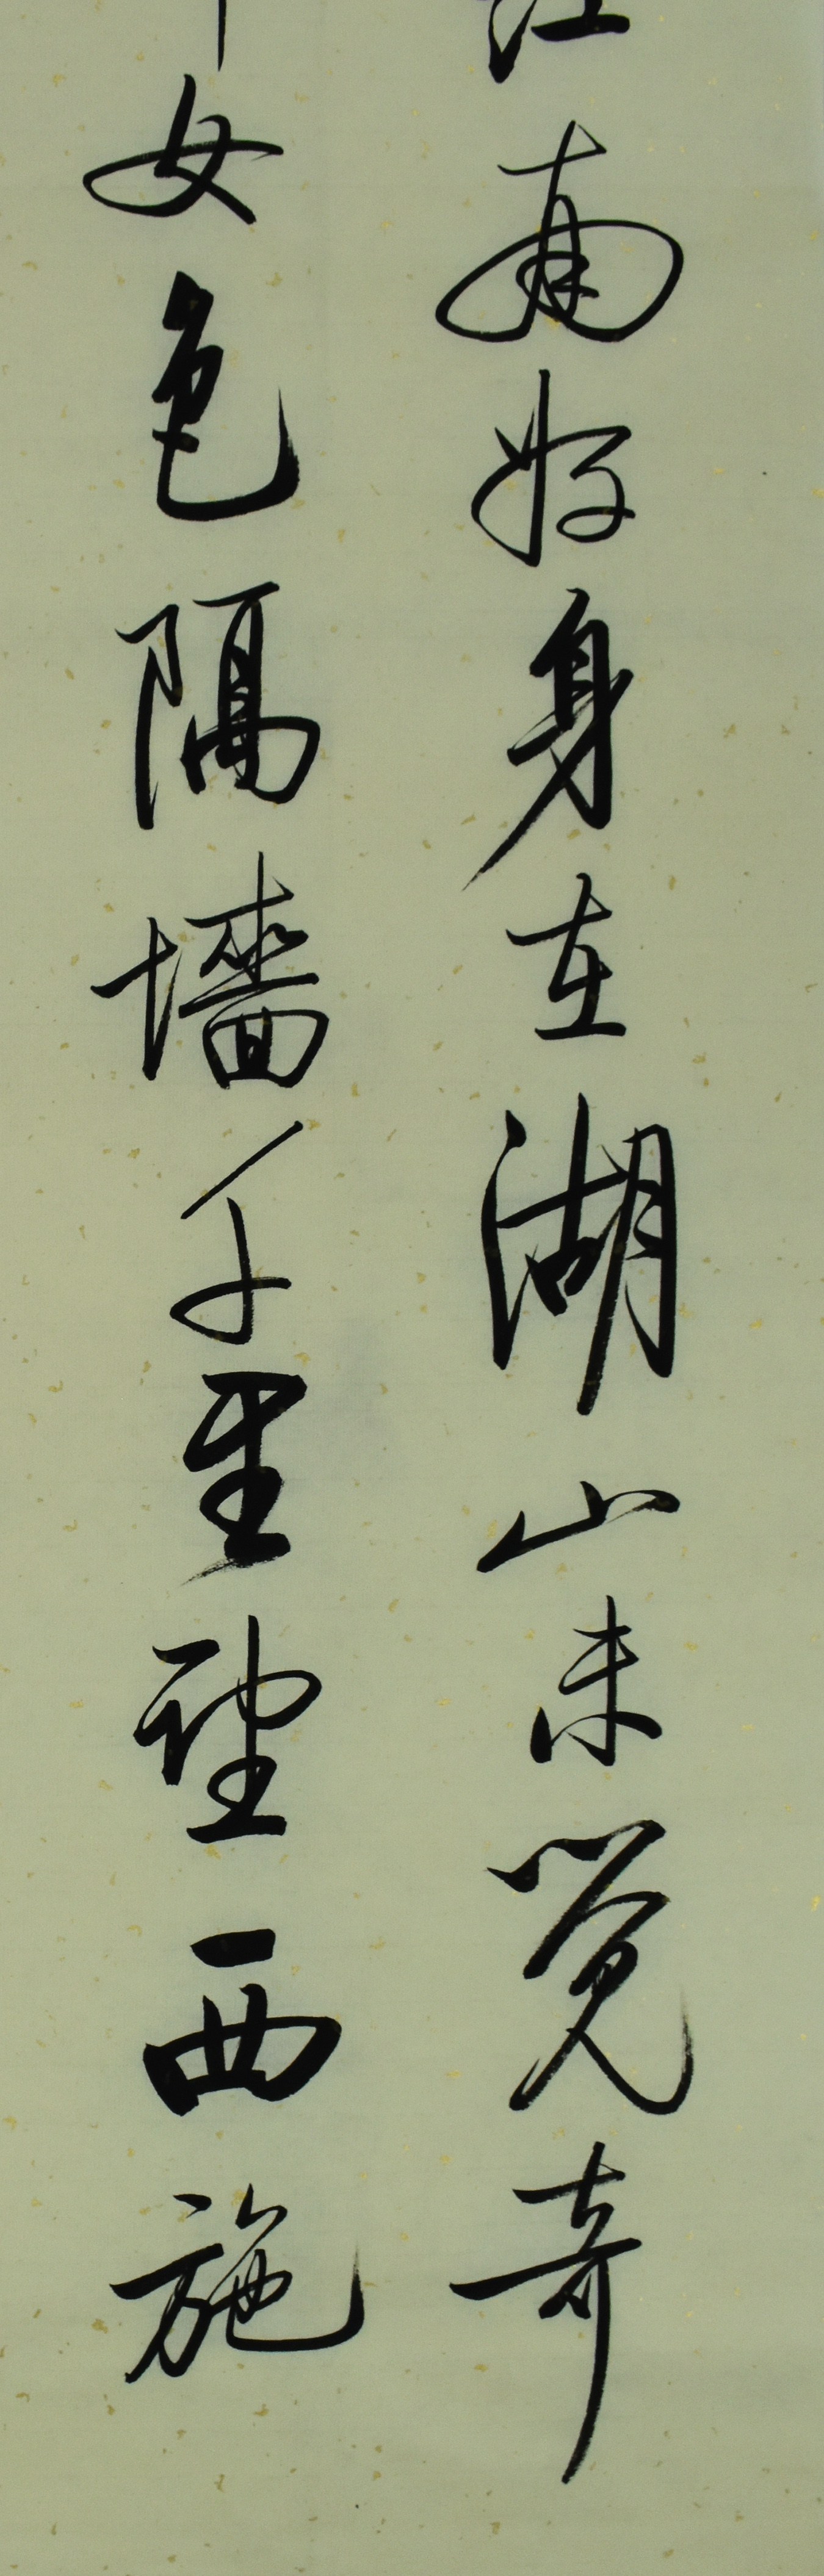 江南好身在湖山未觉奇
女色隔墙千里望西施